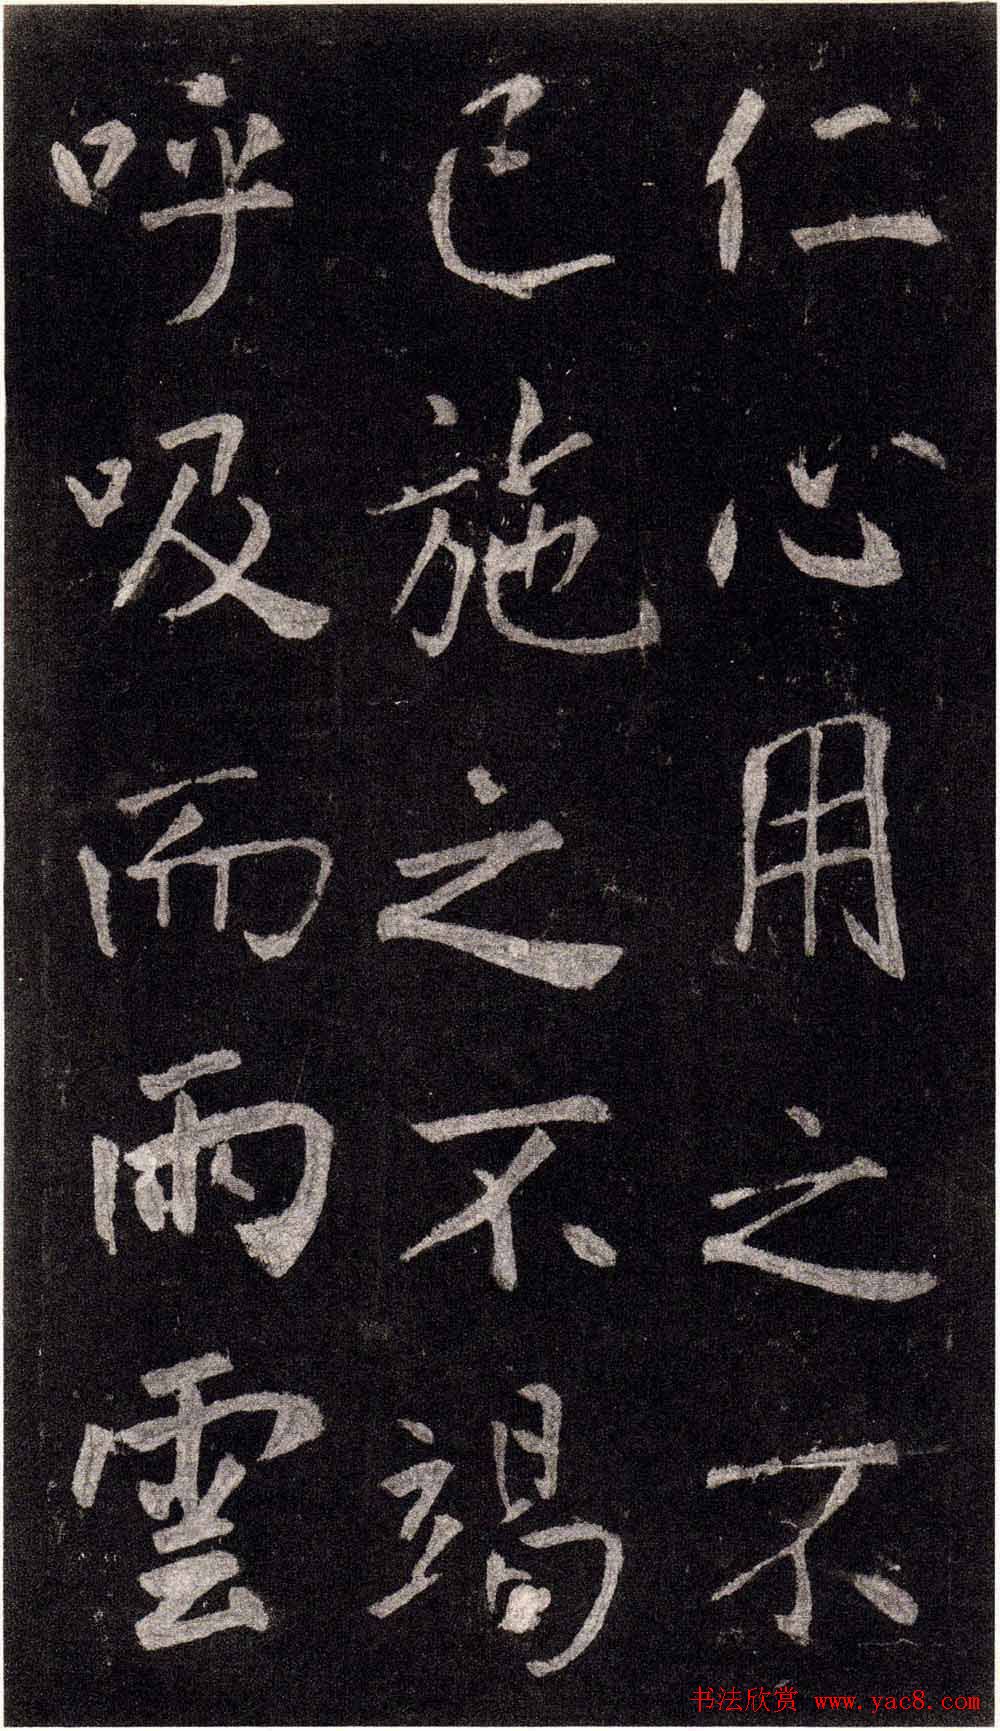 仁心用之不
已施之不竭
呼吸而雨雲
书法欣赏 www.yac8.com